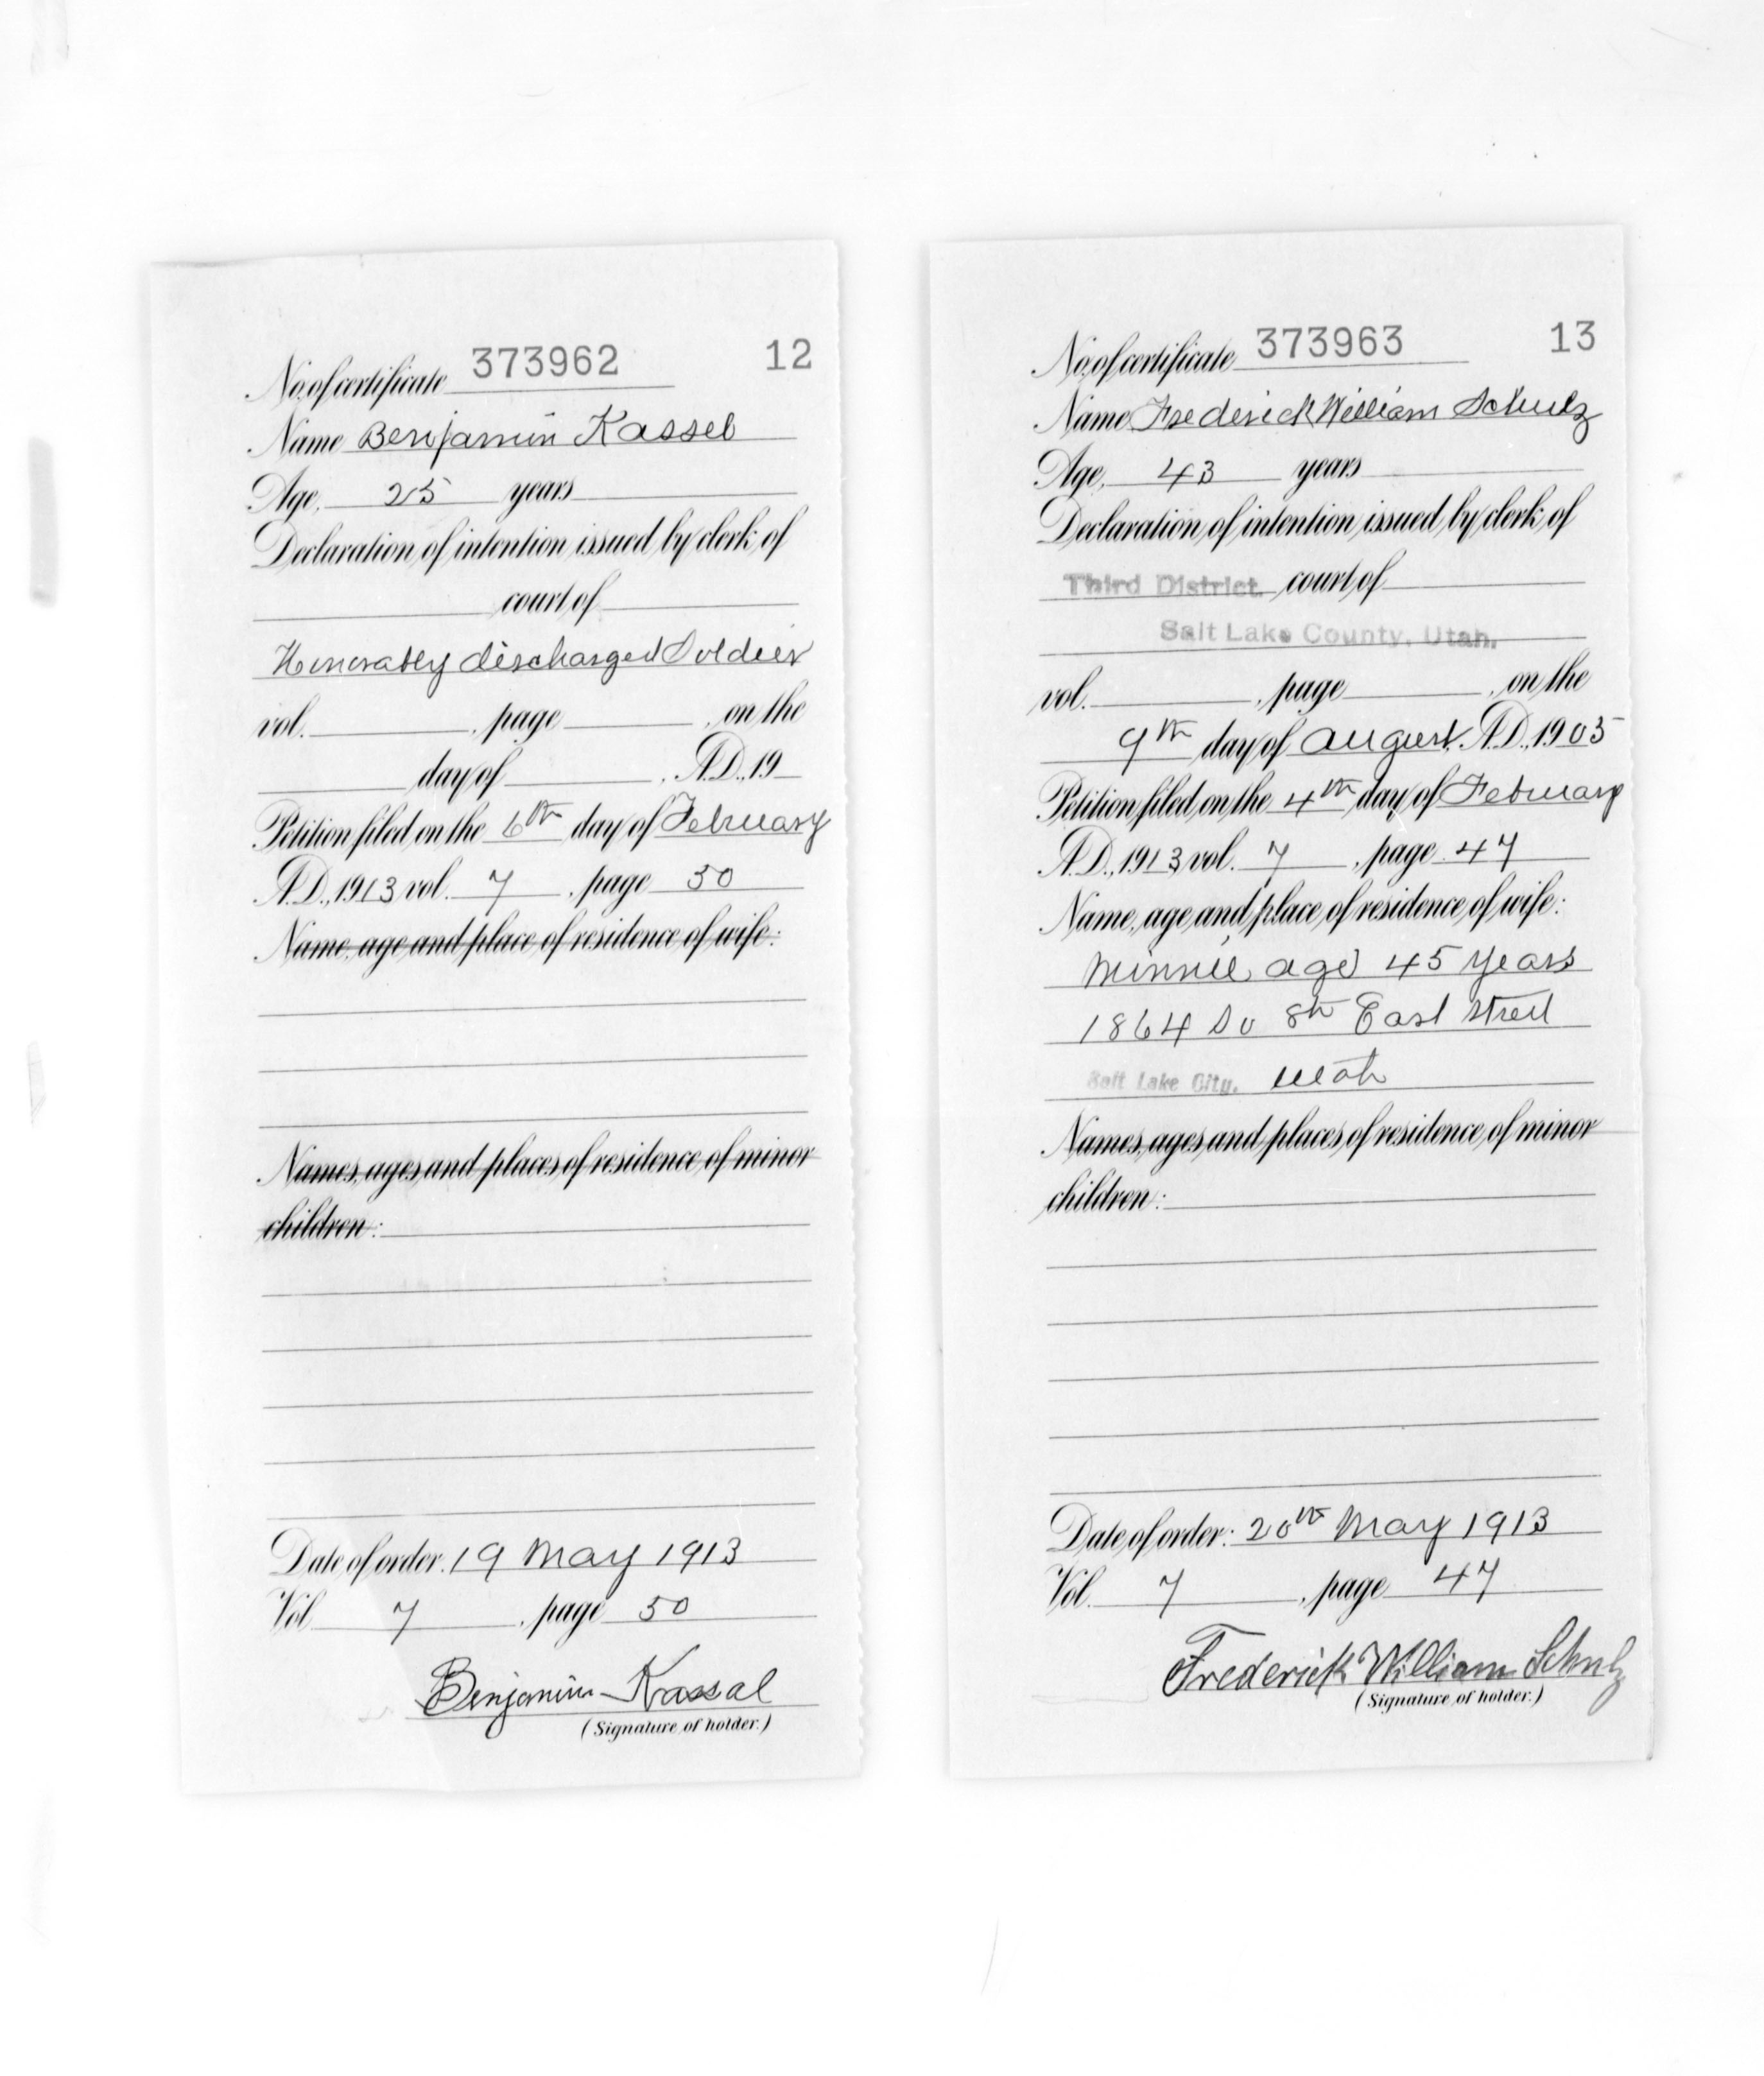 No. of certificate 373962 12
Name Benjamin Kassel
Age, 25 years
Declaration of intention issued by clerk of
court of
Honorably discharged Soldier
vol. , page , on the
day of , A.D., 19
Petition filed on the 6th day of February
A.D., 1913 vol. 7 , page 50
Name, age and place of residence of wife:
Names, ages and places of residence of minor
children:
Date of order. 19 May 1913
Vol 7 , page 50
Benjamin Kassal
(Signature of holder.)
No. of certificate 373963 13
Name Frederick William Schulz
Age, 43 years
Declaration of intention issued by clerk of
Third District. court of
Salt Lake County, Utah.
vol. , page , on the
9th day of August A.D., 1905
Petition filed on the 4th day of February
A.D., 1913 vol. 7 , page 47
Name, age and place of residence of wife:
Minnie age 45 years
1864 So 8th East Street
Salt Lake City, Utah
Names, ages and places of residence of minor
children:
Date of order: 20th May 1913
Vol. 7 , page 47
Frederick William Schulz
(Signature of holder.)